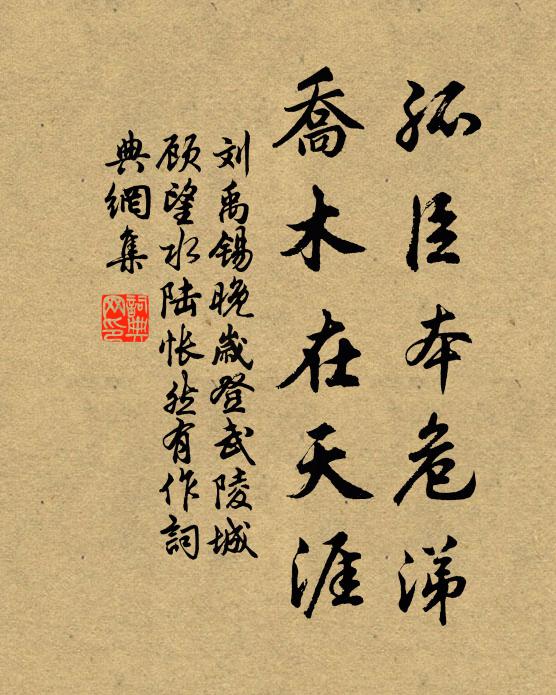 孤臣本危涕
喬木在天涯
刘禹锡晚歲登武陵城
顾望水陆怅然有作詞
典網集
詞典网印